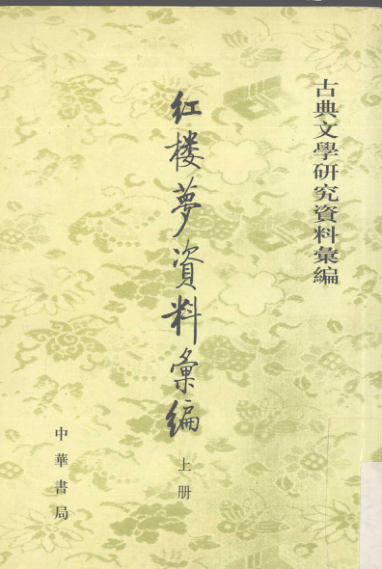 古典文學研究資料彙編
红楼夢資料彙編
上册
中華書局